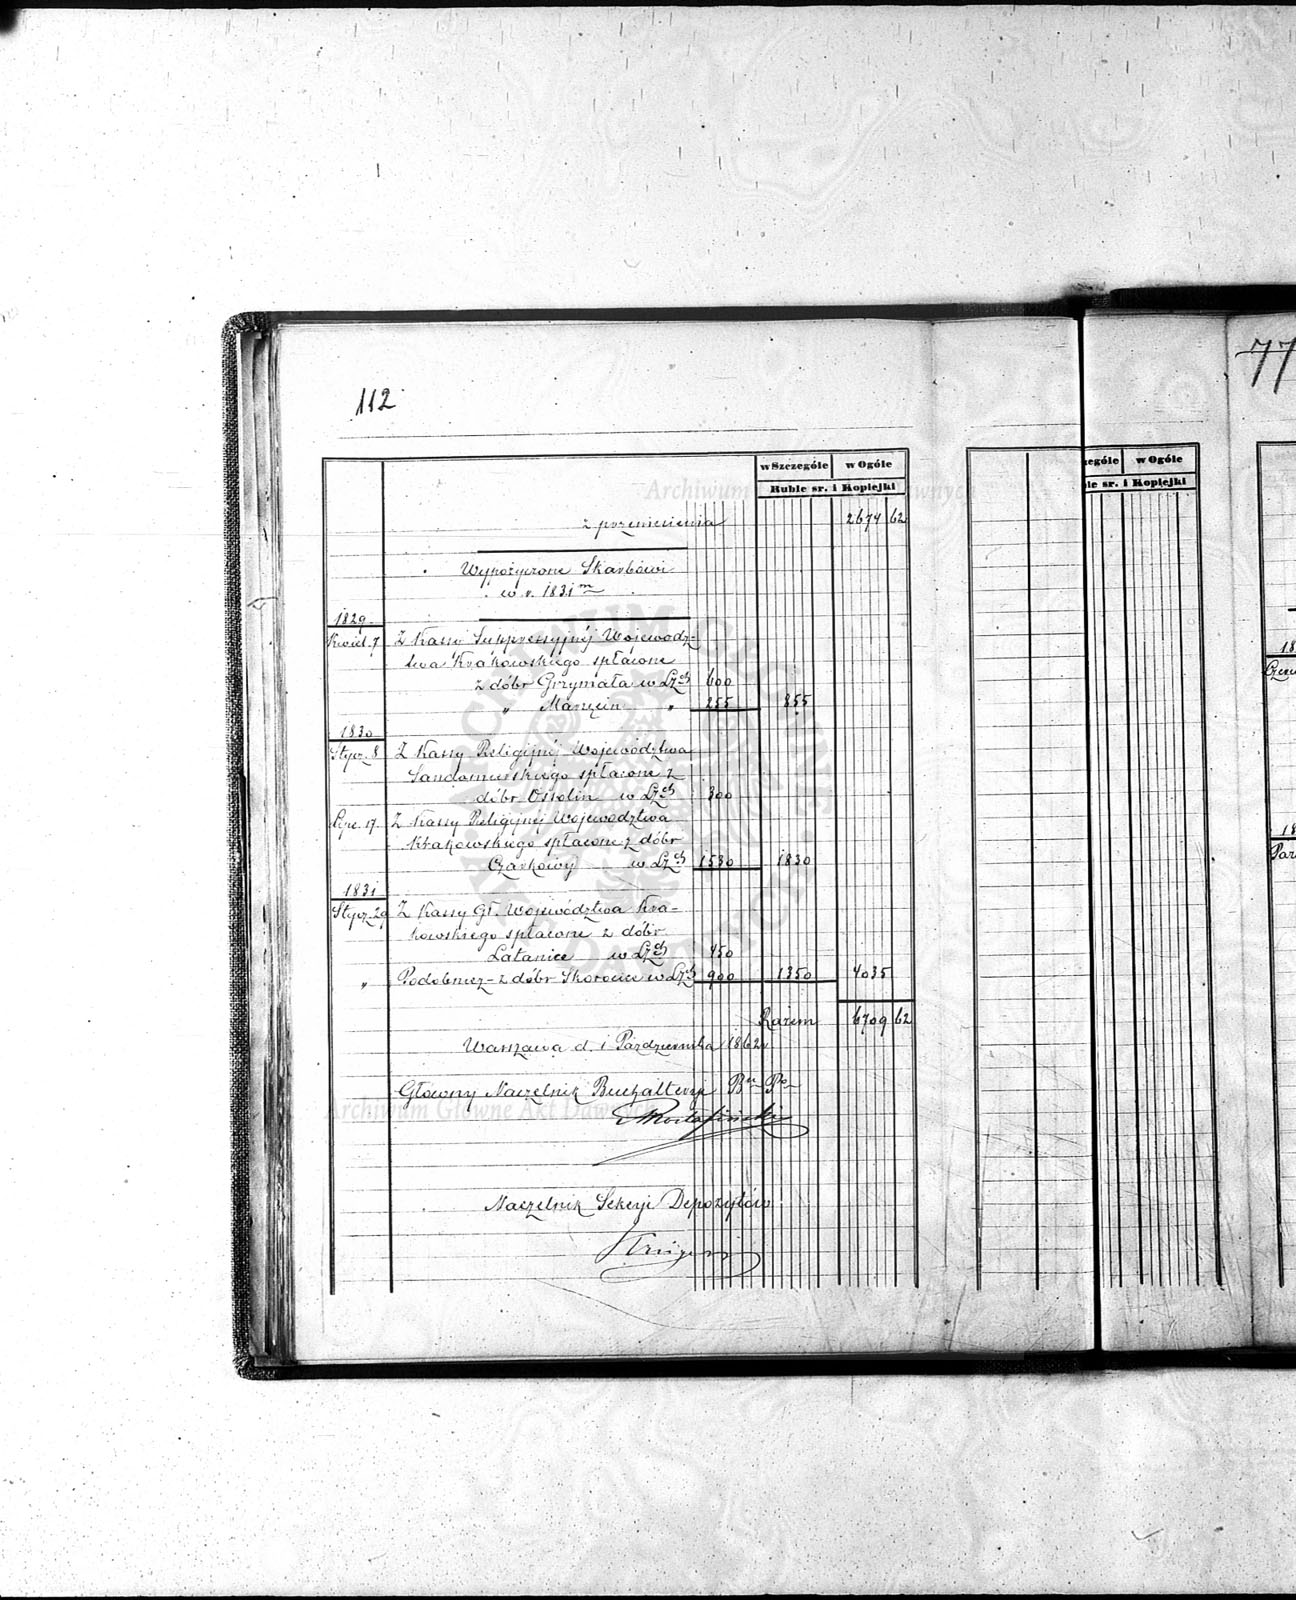 112
77
w Szczególe w Ogóle
Ruble sr. i Kopiejki
z przeniesienia 2674 62
Wypożyczone Skarbowi
w r. 1831 m
1829
Kwiet. 7 Z Kassy Suppressyjnéj Wojewodz-
twa Krakowskiego spłacone
z dóbr Grzymała w Lz ch 600
" Marszcin " 255 855
1830
Stycz. 8 Z Kassy Religijnéj Województwa
Sandomierskiego spłacone z
dóbr Ossolin w Lz ch 300
Lipc. 17 Z Kassy Religijnéj Województwa
Krakowskiego spłacone z dóbr
Czarkowy w Lz ch 1530 1830
1831
Stycz. 29 Z Kassy Gł. Województwa Kra-
kowskiego spłacone z dóbr
Latanice w Lz ch 450
" Podobnież z dóbr Skorocice w Lz ch 900 1350 4035
Razem 6709 62
Warszawa d. 1 Października 1862 r.
Główny Naczelnik Buchalteryi
Naczelnik Sekcyi Depozytów
zególe w Ogóle
ble sr. i Kopiejki
Archiwum Główne Akt Dawnych